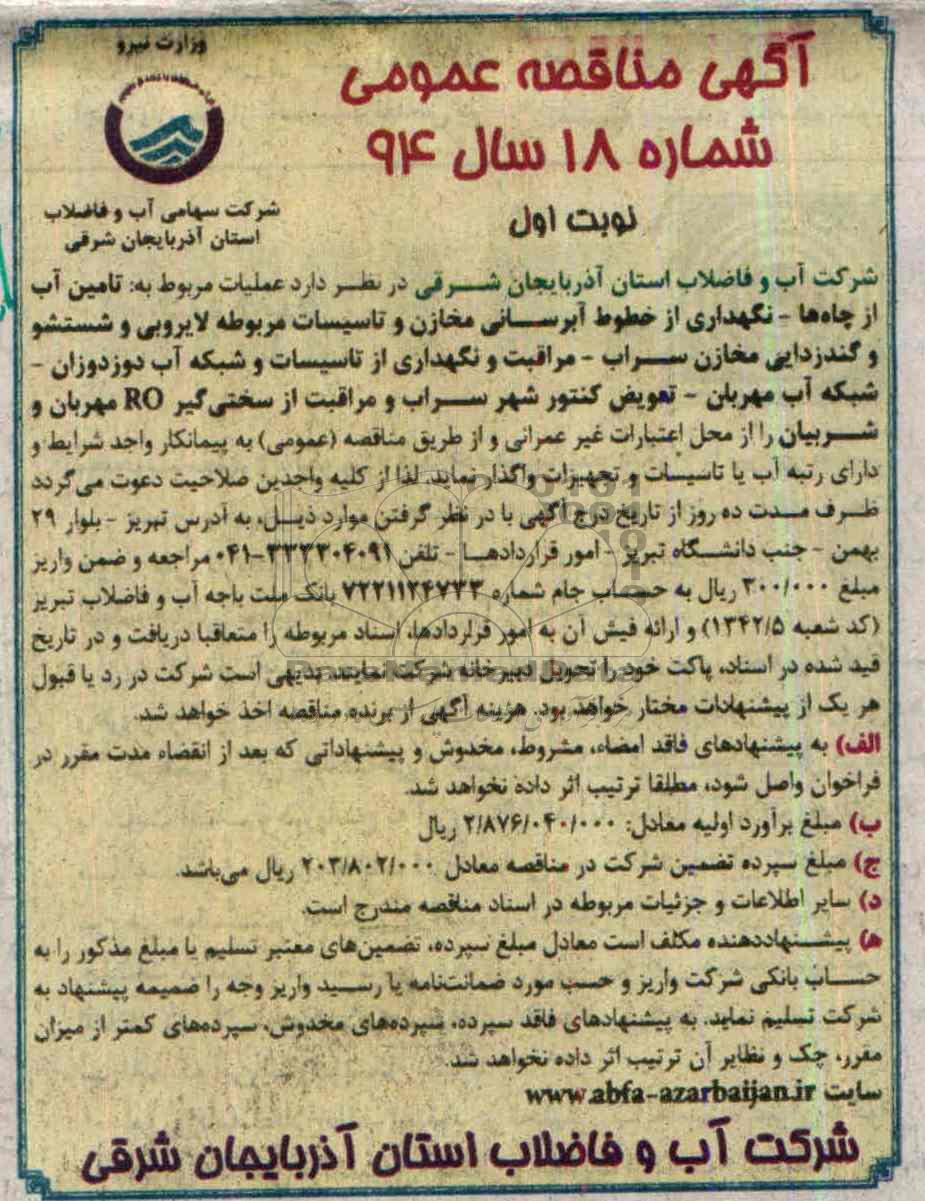 وزارت نیرو
شرکت سهامی آب و فاضلاب
استان آذربایجان شرقی
آگهی مناقصه عمومی
شماره ۱۸ سال ۹۴
نوبت اول
شرکت آب و فاضلاب استان آذربایجان شرقی در نظر دارد عملیات مربوط به: تامین آب
از چاه‌ها - نگهداری از خطوط آبرسانی مخازن و تاسیسات مربوطه لایروبی و شستشو
و گندزدایی مخازن سراب - مراقبت و نگهداری از تاسیسات و شبکه آب دوزدوزان -
شبکه آب مهربان - تعویض کنتور شهر سراب و مراقبت از سختی‌گیر RO مهربان و
شربیان را از محل اعتبارات غیر عمرانی و از طریق مناقصه (عمومی) به پیمانکار واجد شرایط و
دارای رتبه آب یا تاسیسات و تجهیزات واگذار نماید. لذا از کلیه واجدین صلاحیت دعوت می‌گردد
ظرف مدت ده روز از تاریخ درج آگهی با در نظر گرفتن موارد ذیل، به آدرس تبریز - بلوار ۲۹
بهمن - جنب دانشگاه تبریز - امور قراردادها - تلفن ۳۳۳۳۰۴۰۹۱-۰۴۱ مراجعه و ضمن واریز
مبلغ ۳۰۰/۰۰۰ ریال به حساب جام شماره ۷۲۲۱۱۲۴۷۳۳ بانک ملت باجه آب و فاضلاب تبریز
(کد شعبه ۱۳۴۲/۵) و ارائه فیش آن به امور قراردادها، اسناد مربوطه را متعاقبا دریافت و در تاریخ
قید شده در اسناد، پاکت خود را تحویل دبیرخانه شرکت نمایند. بدیهی است شرکت در رد یا قبول
هر یک از پیشنهادات مختار خواهد بود. هزینه آگهی از برنده مناقصه اخذ خواهد شد.
الف) به پیشنهادهای فاقد امضاء، مشروط، مخدوش و پیشنهاداتی که بعد از انقضاء مدت مقرر در
فراخوان واصل شود، مطلقا ترتیب اثر داده نخواهد شد.
ب) مبلغ برآورد اولیه معادل: ۲/۸۷۶/۰۴۰/۰۰۰ ریال
ج) مبلغ سپرده تضمین شرکت در مناقصه معادل ۲۰۳/۸۰۲/۰۰۰ ریال می‌باشد.
د) سایر اطلاعات و جزئیات مربوطه در اسناد مناقصه مندرج است.
ه) پیشنهاددهنده مکلف است معادل مبلغ سپرده، تضمین‌های معتبر تسلیم یا مبلغ مذکور را به
حساب بانکی شرکت واریز و حسب مورد ضمانت‌نامه یا رسید واریز وجه را ضمیمه پیشنهاد به
شرکت تسلیم نماید. به پیشنهادهای فاقد سپرده، سپرده‌های مخدوش، سپرده‌های کمتر از میزان
مقرر، چک و نظایر آن ترتیب اثر داده نخواهد شد.
سایت www.abfa-azarbaijan.ir
شرکت آب و فاضلاب استان آذربایجان شرقی